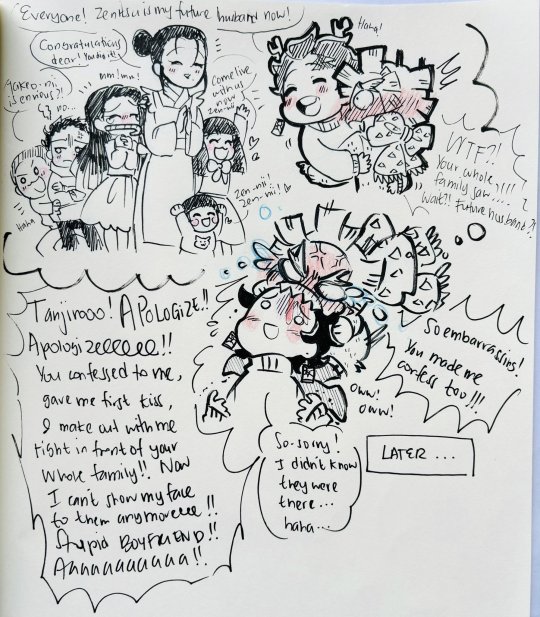 Everyone! Zenitsu is my future husband now!
Haha!
Congratulations
dear! You did it!
mm! mm!
Come live
with us
now
zen-nii
is envious!!
no...
Haha
Zen-nii!
zen-nii!
WTF?!
Your whole
family saw....!!
Wait!! Future husband?!
Tanjirooo! APOLOGIZE!!
Apologizeeeeee!!
You confessed to me,
gave me first kiss,
& make out with me
right in front of your
whole family!! Now
I can't show my face
to them anymoreeee!!
Stupid BOYFRIEND!!
Aaaaaaaaaaa!!
So embarrassing!
You made me
confess too!!!
oww!
oww!
So-sorry!
I didn't know
they were
there...
haha...
LATER ...